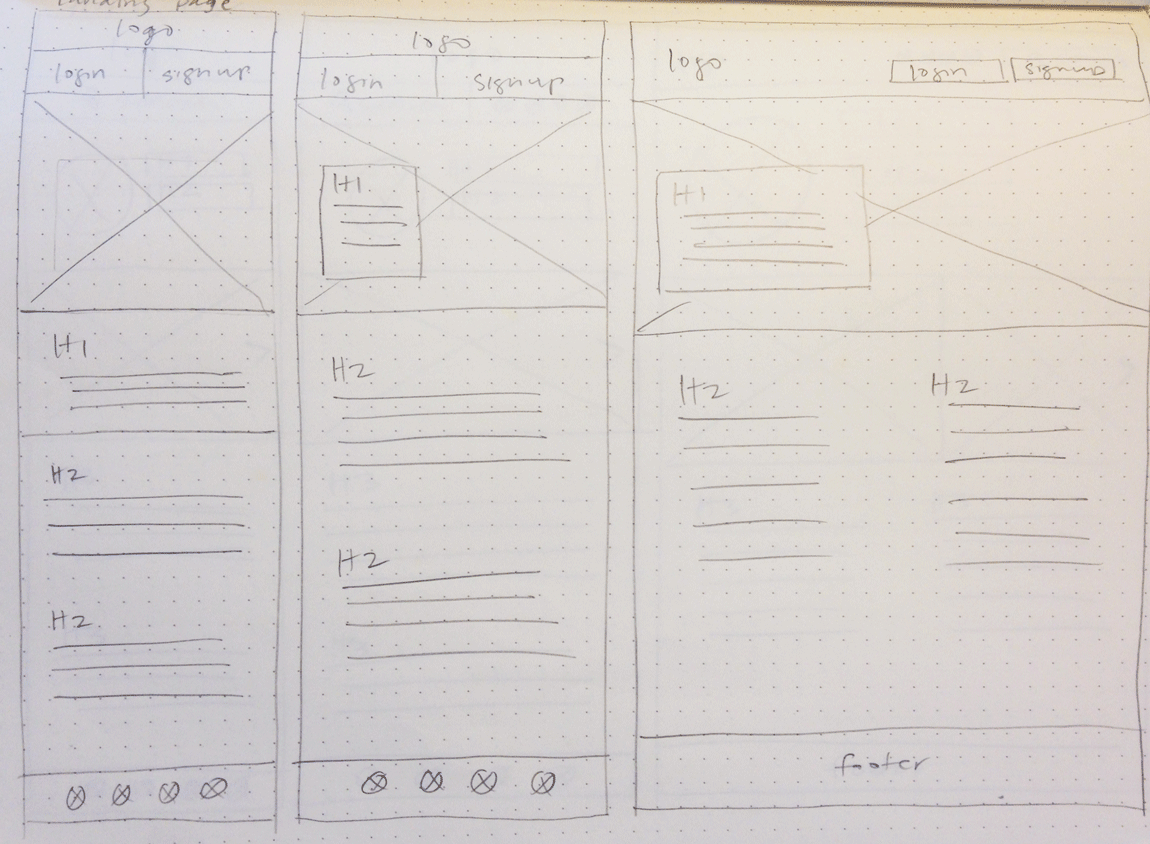 landing page
logo
login signup
H1
H2
H2
logo
login signup
H1
H2
H2
logo login signup
H1
H2 H2
footer